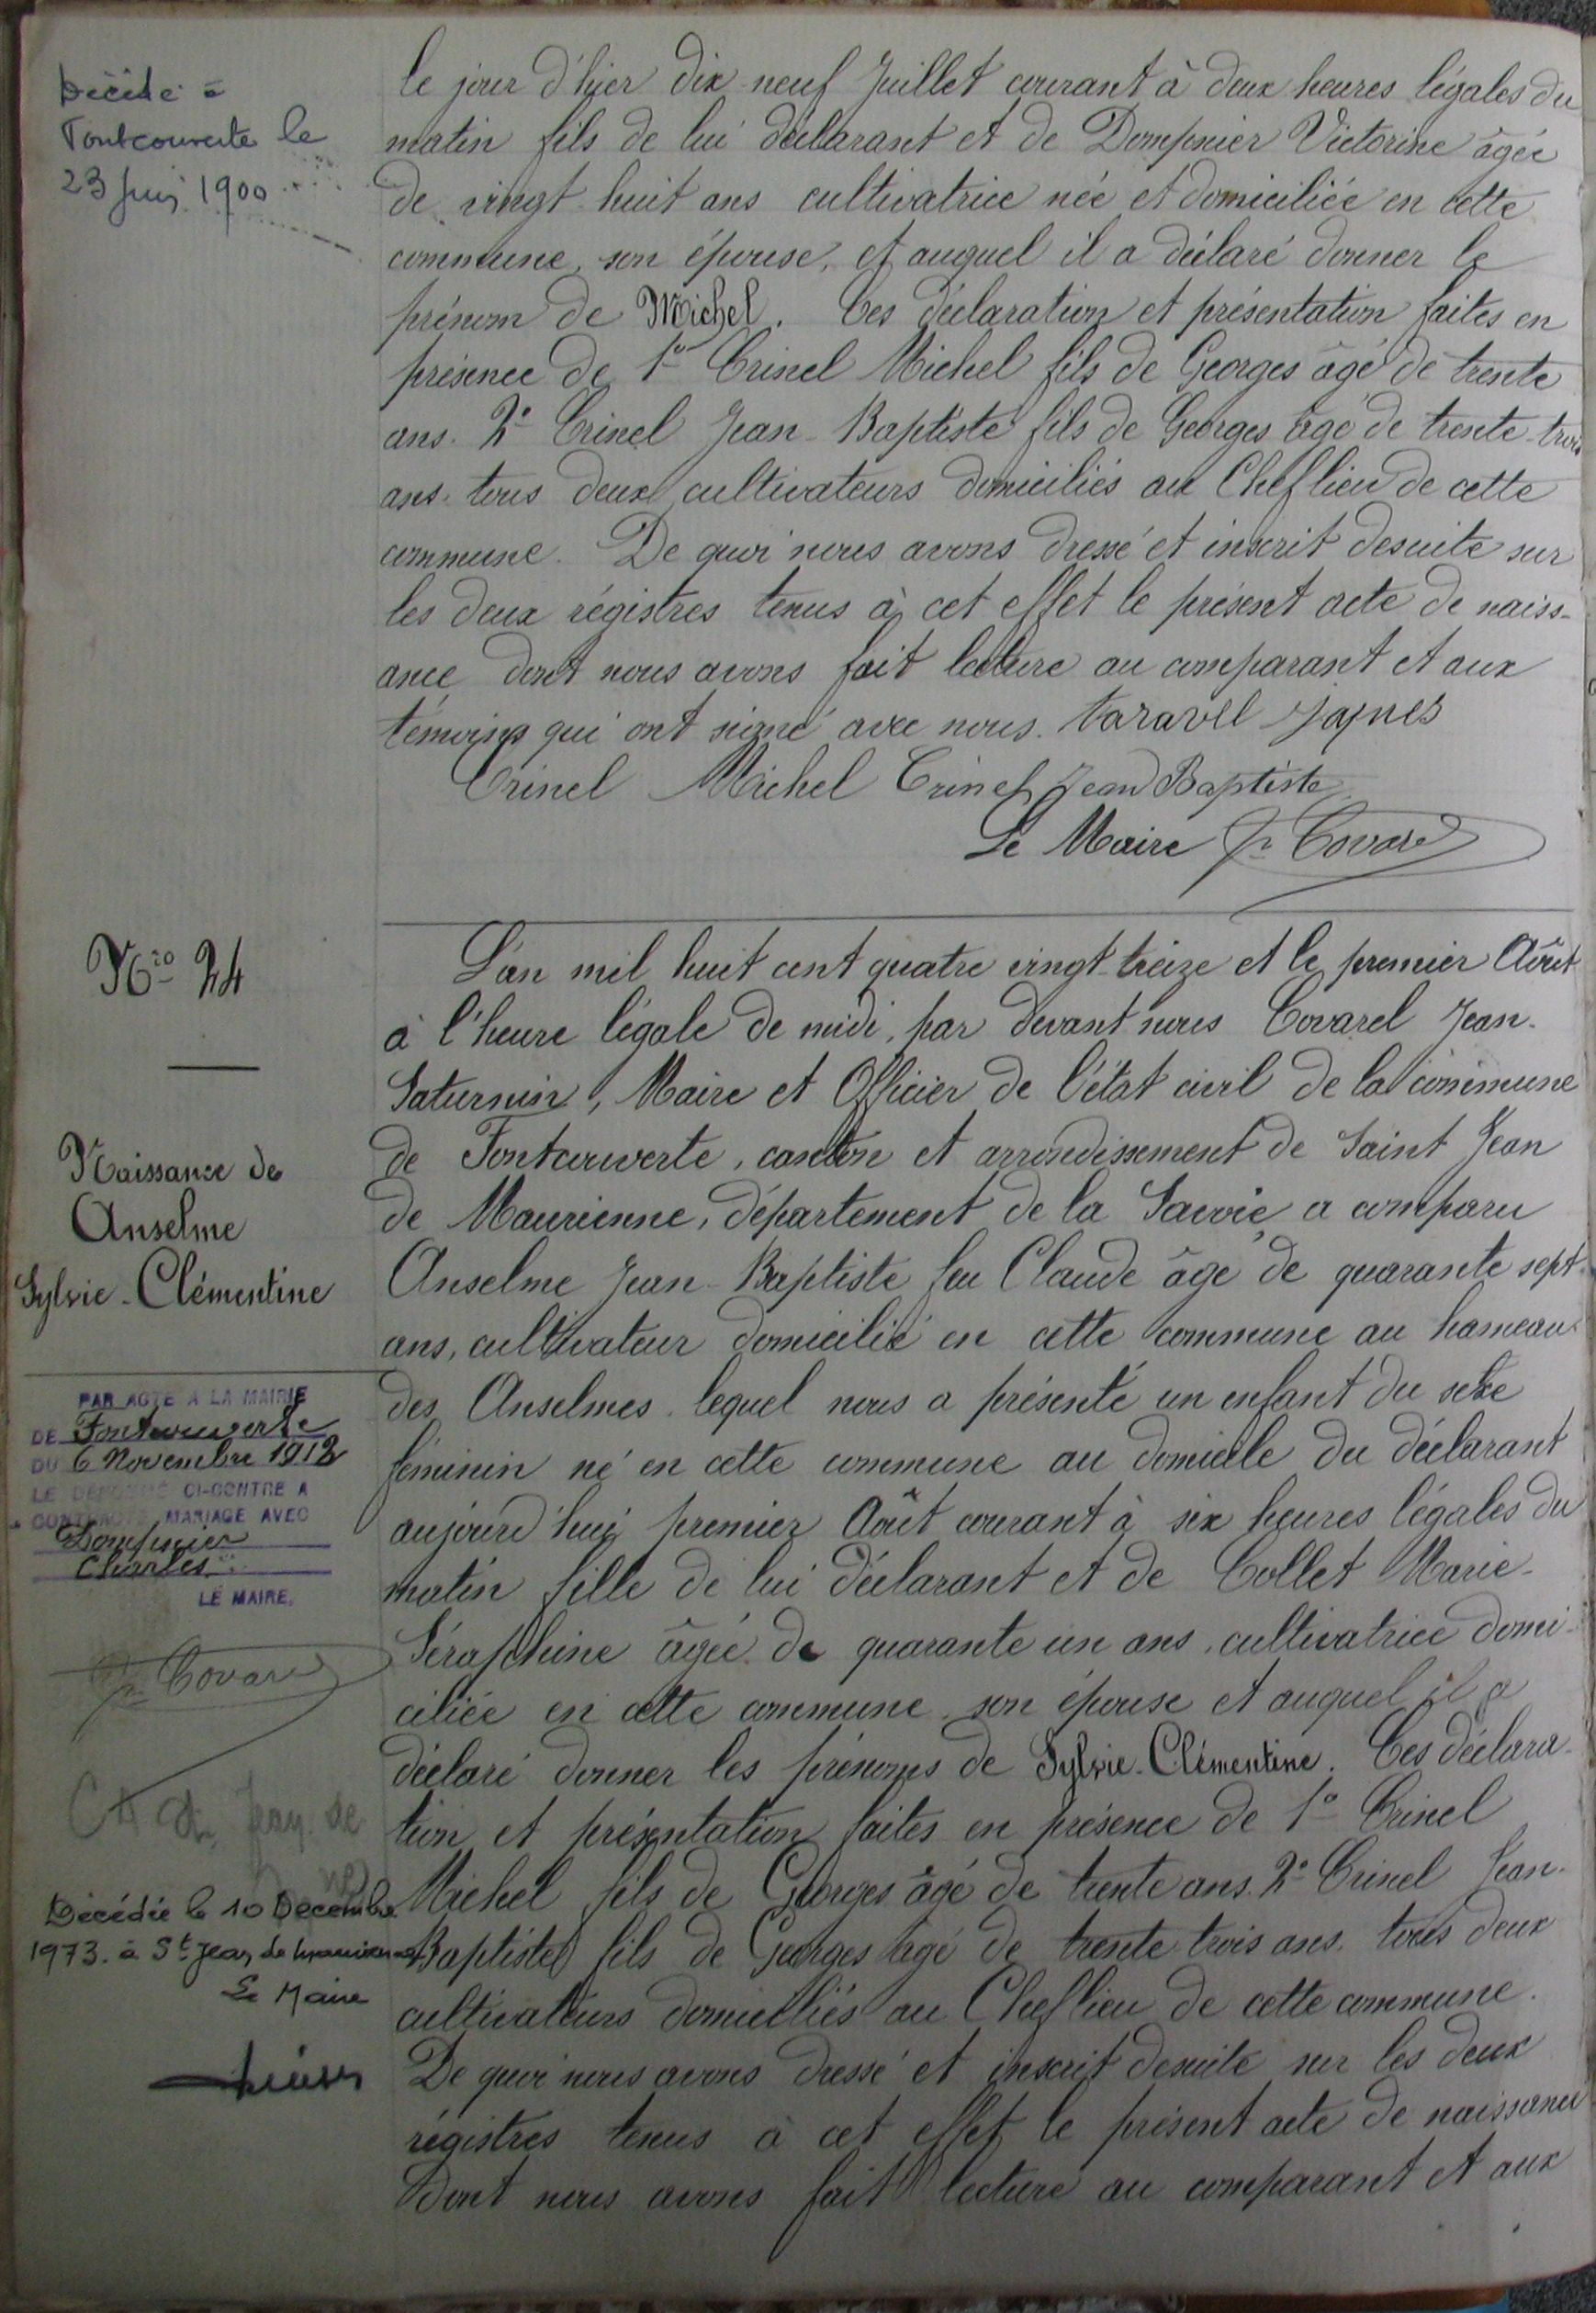 Décédé à
Fontcouverte le
23 Juin 1900
le jour d'hier dix-neuf Juillet courant à deux heures légales du
matin fils de lui déclarant et de Dompnier Victorine âgée
de vingt-huit ans cultivatrice née et domiciliée en cette
commune, son épouse, et auquel il a déclaré donner le
prénom de Michel. Ces déclaration et présentation faites en
présence de 1º Crinel Michel fils de Georges âgé de trente
ans. 2º Crinel Jean-Baptiste fils de Georges âgé de trente-trois
ans. tous deux cultivateurs domiciliés au Cheflieu de cette
commune. De quoi nous avons dressé et inscrit desuite sur
les deux régistres tenus à cet effet le présent acte de naiss-
ance dont nous avons fait lecture au comparant et aux
témoins qui ont signé avec nous. taravel Jaques
Crinel Michel Crinel Jean Baptiste
Le Maire Jn Covarel
Nro 24
Naissance de
Anselme
Sylvie-Clémentine
PAR ACTE A LA MAIRIE
DE Fontcouverte
DU 6 Novembre 1912
LE DENOMMÉ CI-CONTRE A
CONTRACTÉ MARIAGE AVEC
Dompnier
Charles
LE MAIRE,
Jn Covarel
Décédée le 10 Decembre
1973. à St Jean de Maurienne
Le Maire
L'an mil huit cent quatre vingt-treize et le premier Août
à l'heure légale de midi, par devant nous Covarel Jean-
Saturnin, Maire et Officier de l'état civil de la commune
de Fontcouverte, canton et arrondissement de Saint Jean
de Maurienne, département de la Savoie, a comparu
Anselme Jean-Baptiste feu Claude âgé de quarante sept
ans, cultivateur domicilié en cette commune au hameau
des Anselmes. lequel nous a présenté un enfant du sexe
féminin né en cette commune au domicile du déclarant
aujourd'hui premier Août courant à six heures légales du
matin fille de lui déclarant et de Collet Marie-
Séraphine âgée de quarante un ans, cultivatrice domi-
ciliée en cette commune, son épouse et auquel il a
déclaré donner les prénoms de Sylvie-Clémentine. Ces déclara-
tion et présentation faites en présence de 1º Crinel
Michel fils de Georges âgé de trente ans. 2º Crinel Jean-
Baptiste fils de Georges âgé de trente trois ans. tous deux
cultivateurs domiciliés au Cheflieu de cette commune.
De quoi nous avons dressé et inscrit desuite sur les deux
régistres tenus à cet effet le présent acte de naissance
dont nous avons fait lecture au comparant et aux